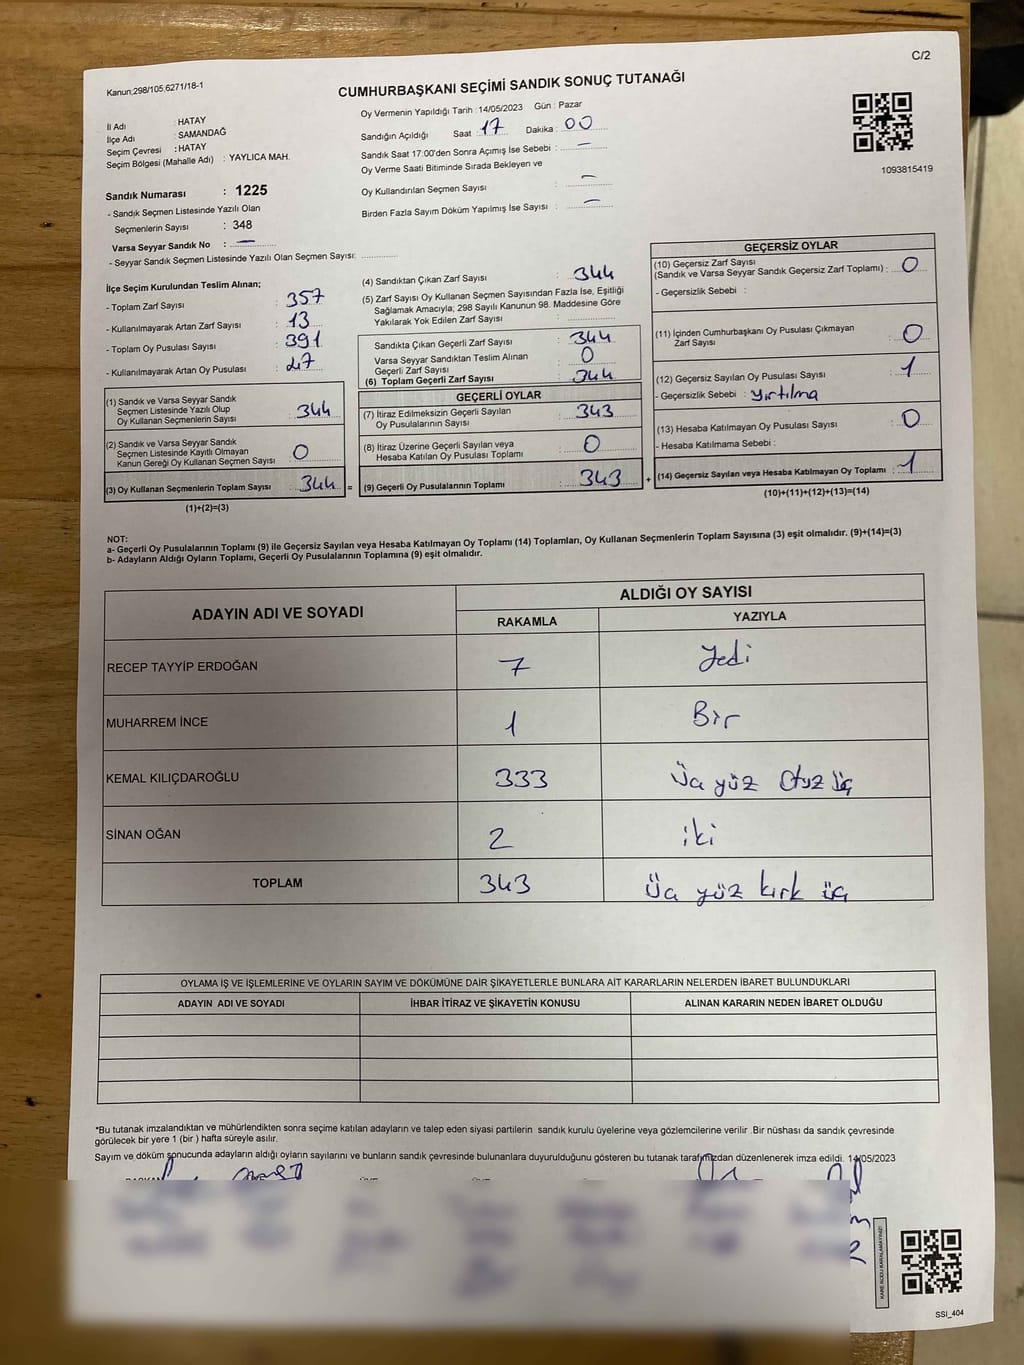 C/2
Kanun,298/105;6271/18-1
CUMHURBAŞKANI SEÇİMİ SANDIK SONUÇ TUTANAĞI
İl Adı : HATAY
İlçe Adı : SAMANDAĞ
Seçim Çevresi : HATAY
Seçim Bölgesi (Mahalle Adı) : YAYLICA MAH.
Oy Vermenin Yapıldığı Tarih : 14/05/2023 Gün : Pazar
Sandığın Açıldığı Saat : 17 Dakika : 00
Sandık Saat 17:00'den Sonra Açımış İse Sebebi : —
Oy Verme Saati Bitiminde Sırada Bekleyen ve
Oy Kullandırılan Seçmen Sayısı : —
Birden Fazla Sayım Döküm Yapılmış İse Sayısı : —
1093815419
Sandık Numarası : 1225
- Sandık Seçmen Listesinde Yazılı Olan
Seçmenlerin Sayısı : 348
Varsa Seyyar Sandık No : —
- Seyyar Sandık Seçmen Listesinde Yazılı Olan Seçmen Sayısı:
İlçe Seçim Kurulundan Teslim Alınan;
- Toplam Zarf Sayısı : 357
- Kullanılmayarak Artan Zarf Sayısı : 13
- Toplam Oy Pusulası Sayısı : 391
- Kullanılmayarak Artan Oy Pusulası : 47
(1) Sandık ve Varsa Seyyar Sandık
Seçmen Listesinde Yazılı Olup
Oy Kullanan Seçmenlerin Sayısı : 344
(2) Sandık ve Varsa Seyyar Sandık
Seçmen Listesinde Kayıtlı Olmayan
Kanun Gereği Oy Kullanan Seçmen Sayısı : 0
(3) Oy Kullanan Seçmenlerin Toplam Sayısı : 344 =
(1)+(2)=(3)
(4) Sandıktan Çıkan Zarf Sayısı : 344
(5) Zarf Sayısı Oy Kullanan Seçmen Sayısından Fazla İse, Eşitliği
Sağlamak Amacıyla, 298 Sayılı Kanunun 98. Maddesine Göre
Yakılarak Yok Edilen Zarf Sayısı :
Sandıkta Çıkan Geçerli Zarf Sayısı : 344
Varsa Seyyar Sandıktan Teslim Alınan
Geçerli Zarf Sayısı : 0
(6) Toplam Geçerli Zarf Sayısı : 344
GEÇERLİ OYLAR
(7) İtiraz Edilmeksizin Geçerli Sayılan
Oy Pusulalarının Sayısı : 343
(8) İtiraz Üzerine Geçerli Sayılan veya
Hesaba Katılan Oy Pusulası Toplamı : 0
(9) Geçerli Oy Pusulalarının Toplamı : 343 +
GEÇERSİZ OYLAR
(10) Geçersiz Zarf Sayısı
(Sandık ve Varsa Seyyar Sandık Geçersiz Zarf Toplamı) : 0
- Geçersizlik Sebebi :
(11) İçinden Cumhurbaşkanı Oy Pusulası Çıkmayan
Zarf Sayısı : 0
(12) Geçersiz Sayılan Oy Pusulası Sayısı : 1
- Geçersizlik Sebebi : Yırtılma
(13) Hesaba Katılmayan Oy Pusulası Sayısı : 0
- Hesaba Katılmama Sebebi :
(14) Geçersiz Sayılan veya Hesaba Katılmayan Oy Toplamı : 1
(10)+(11)+(12)+(13)=(14)
NOT:
a- Geçerli Oy Pusulalarının Toplamı (9) ile Geçersiz Sayılan veya Hesaba Katılmayan Oy Toplamı (14) Toplamları, Oy Kullanan Seçmenlerin Toplam Sayısına (3) eşit olmalıdır. (9)+(14)=(3)
b- Adayların Aldığı Oyların Toplamı, Geçerli Oy Pusulalarının Toplamına (9) eşit olmalıdır.
ADAYIN ADI VE SOYADI
ALDIĞI OY SAYISI
RAKAMLA YAZIYLA
RECEP TAYYİP ERDOĞAN 7 Yedi
MUHARREM İNCE 1 Bir
KEMAL KILIÇDAROĞLU 333 Üç yüz Otuz üç
SİNAN OĞAN 2 iki
TOPLAM 343 Üç yüz kırk üç
OYLAMA İŞ VE İŞLEMLERİNE VE OYLARIN SAYIM VE DÖKÜMÜNE DAİR ŞİKAYETLERLE BUNLARA AİT KARARLARIN NELERDEN İBARET BULUNDUKLARI
ADAYIN ADI VE SOYADI İHBAR İTİRAZ VE ŞİKAYETİN KONUSU ALINAN KARARIN NEDEN İBARET OLDUĞU
*Bu tutanak imzalandıktan ve mühürlendikten sonra seçime katılan adayların ve talep eden siyasi partilerin sandık kurulu üyelerine veya gözlemcilerine verilir .Bir nüshası da sandık çevresinde
görülecek bir yere 1 (bir ) hafta süreyle asılır.
Sayım ve döküm sonucunda adayların aldığı oyların sayılarını ve bunların sandık çevresinde bulunanlara duyurulduğunu gösteren bu tutanak tarafımızdan düzenlenerek imza edildi. 14/05/2023
KARE KODU KARALAMAYINIZ!
SSI_404